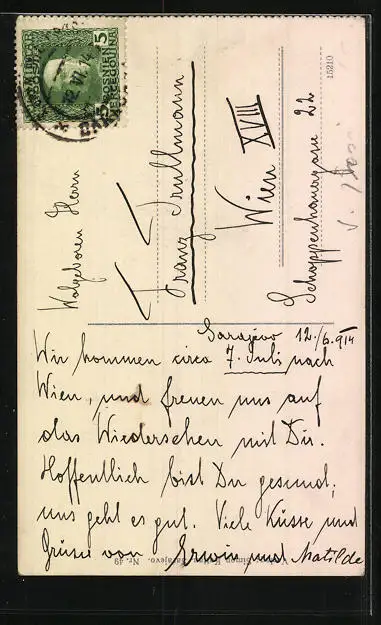 Wolgeboren Herrn
Franz Trullmann
Wien XVIII
Schoppenhauergasse 22
15210
BOSNIEN
HERCEGOVINA
5
5
Sarajevo 12./6. 914
Wir kommen circa 7. Juli nach
Wien, und freuen uns auf
das Wiedersehen mit Dir.
Hoffentlich bist Du gesund;
uns geht es gut. Viele Küsse und
Grüsse von Erwin und Matilde
Simon Sarajevo. Nr. 49